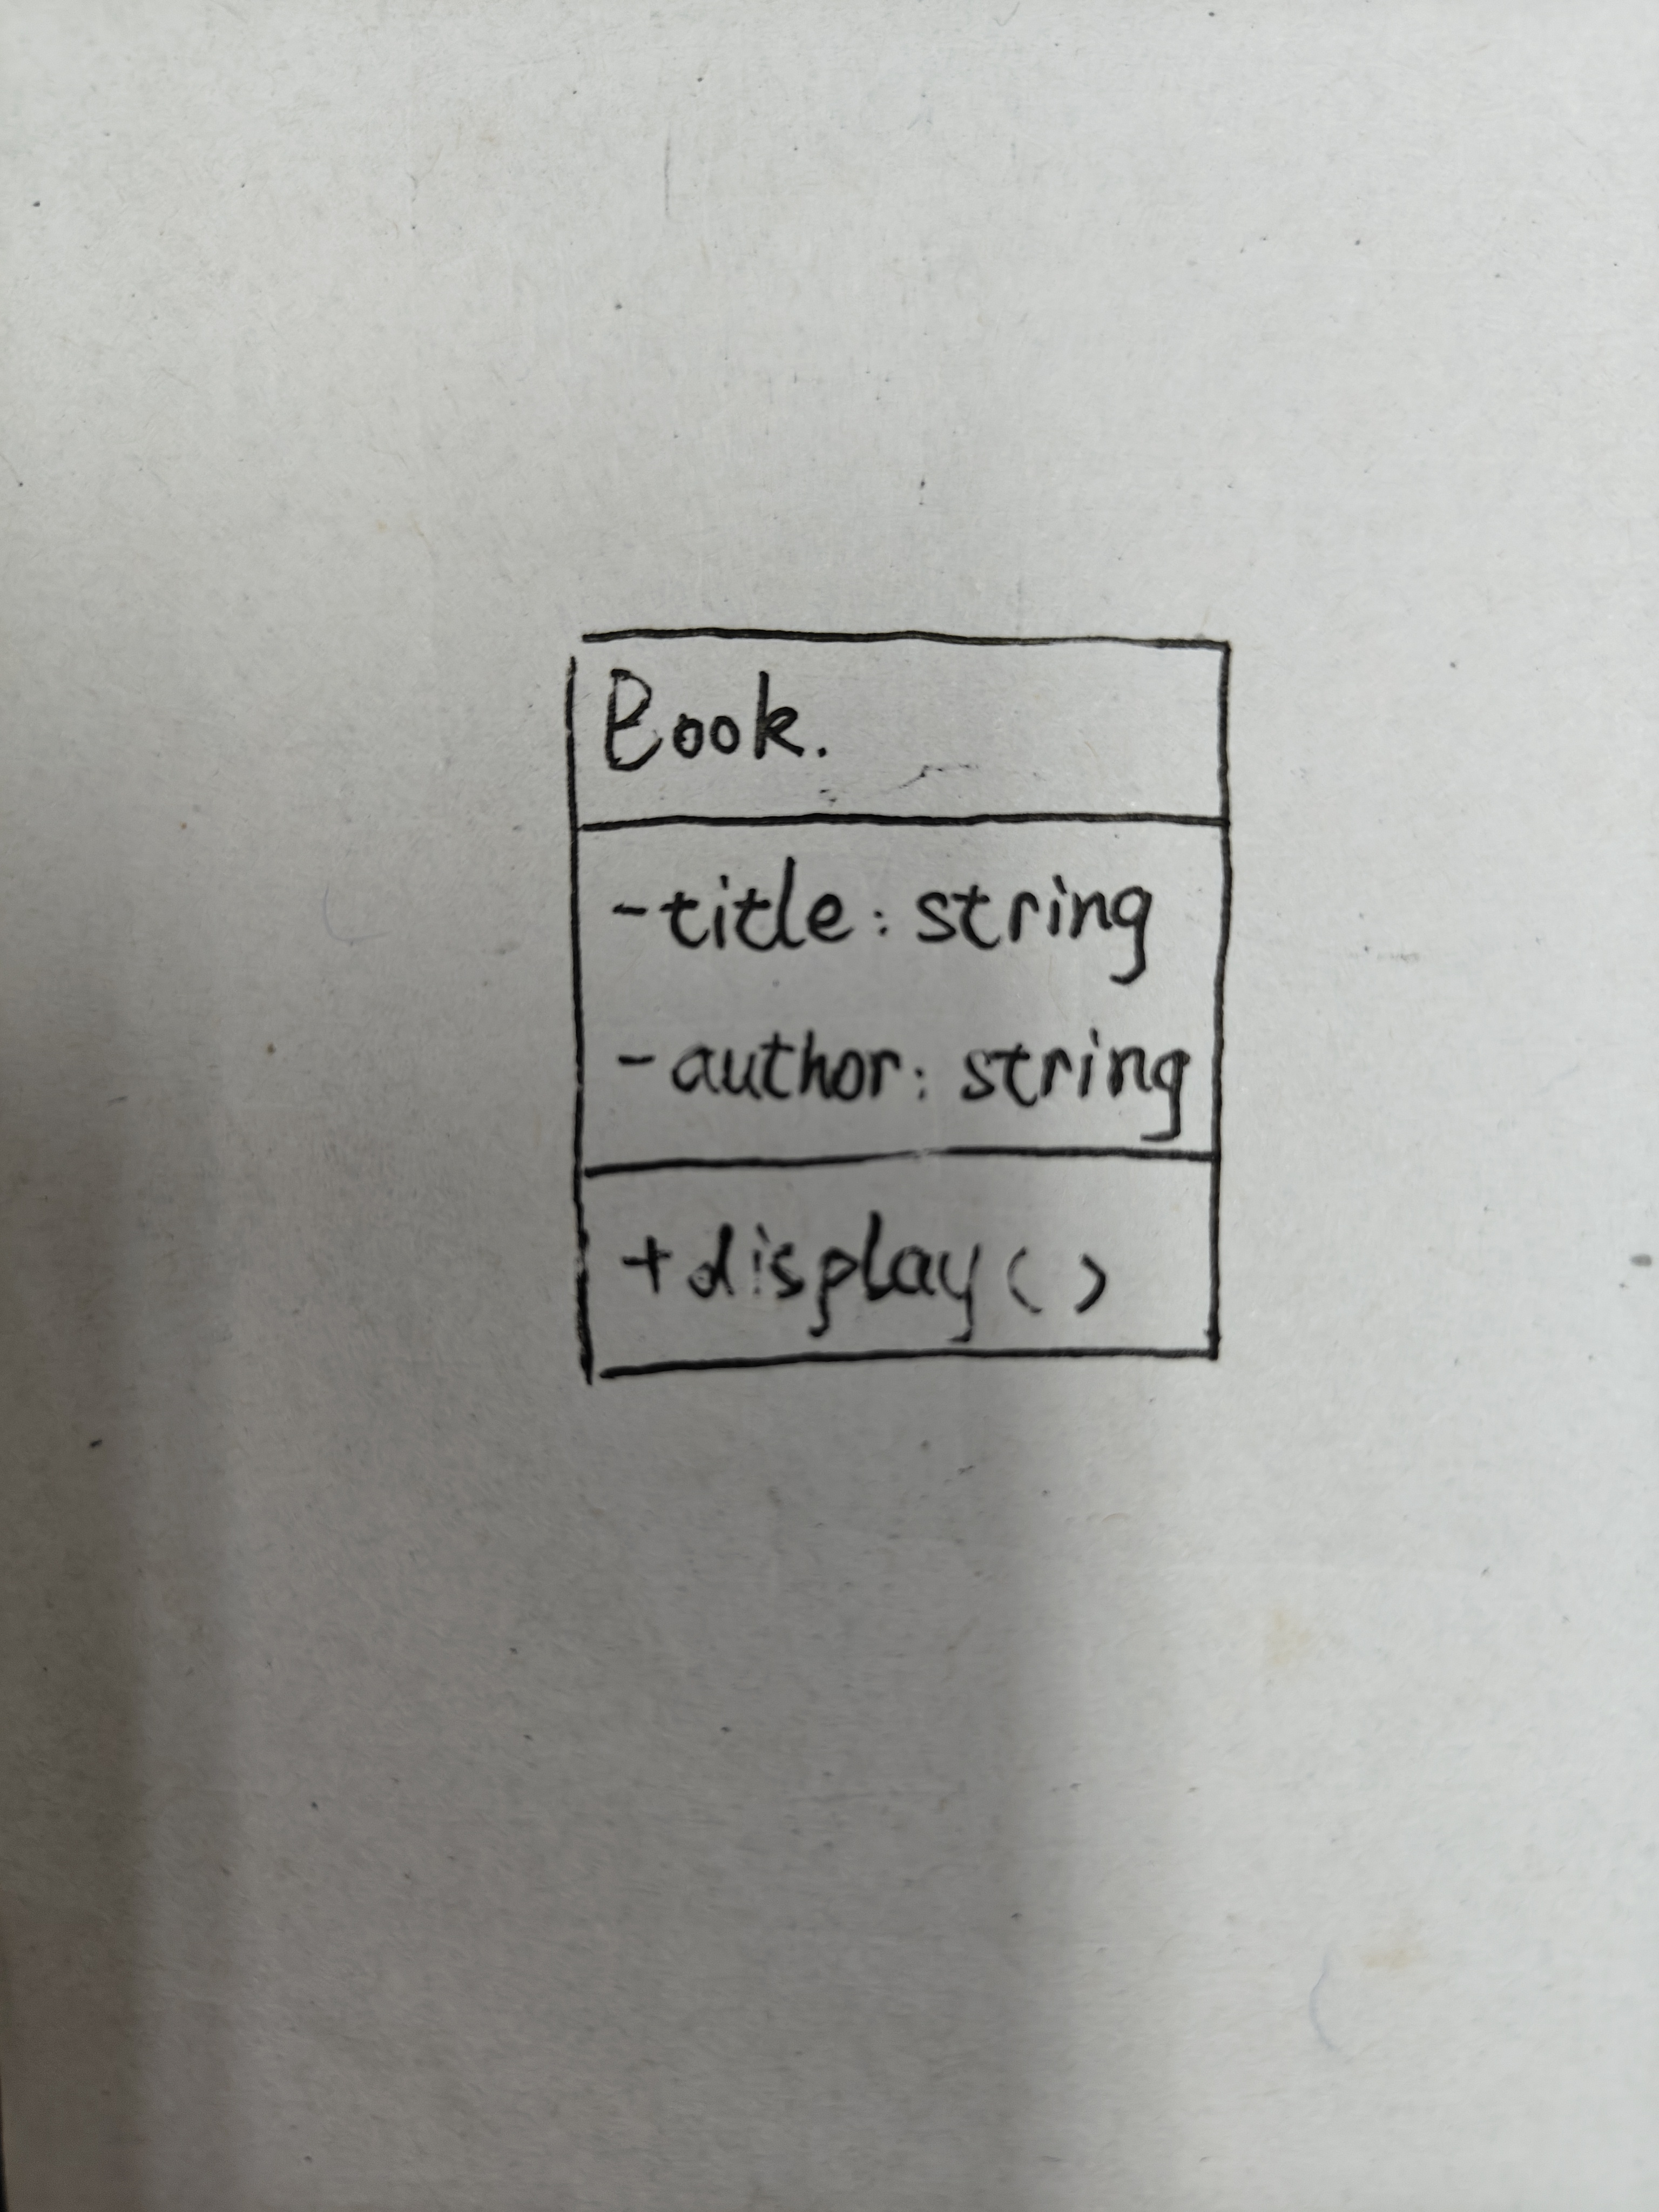 Book.
-title: string
-author: string
+display()